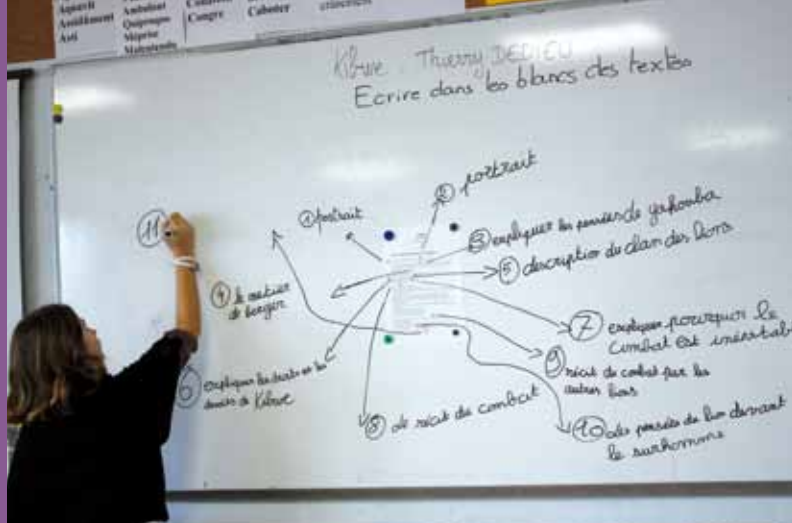 Aquavit
Assidûment
Asti
Ambulant
Quiproquo
Méprise
Malentendu
Congre
Caboter
Kibwe. Thierry DEDIEU
Ecrire dans les blancs des textes
① portrait
② portrait
③ expliquer les pensées de yakouba
④ le métier de berger
⑤ description du clan des lions
⑥ expliquer les droits et les devoirs de Kibwe
⑦ expliquer pourquoi le combat est inévitab
⑧ le récit du combat
⑨ récit du combat par les autres lions
⑩ les pensées du lion devant le surhomme
⑪